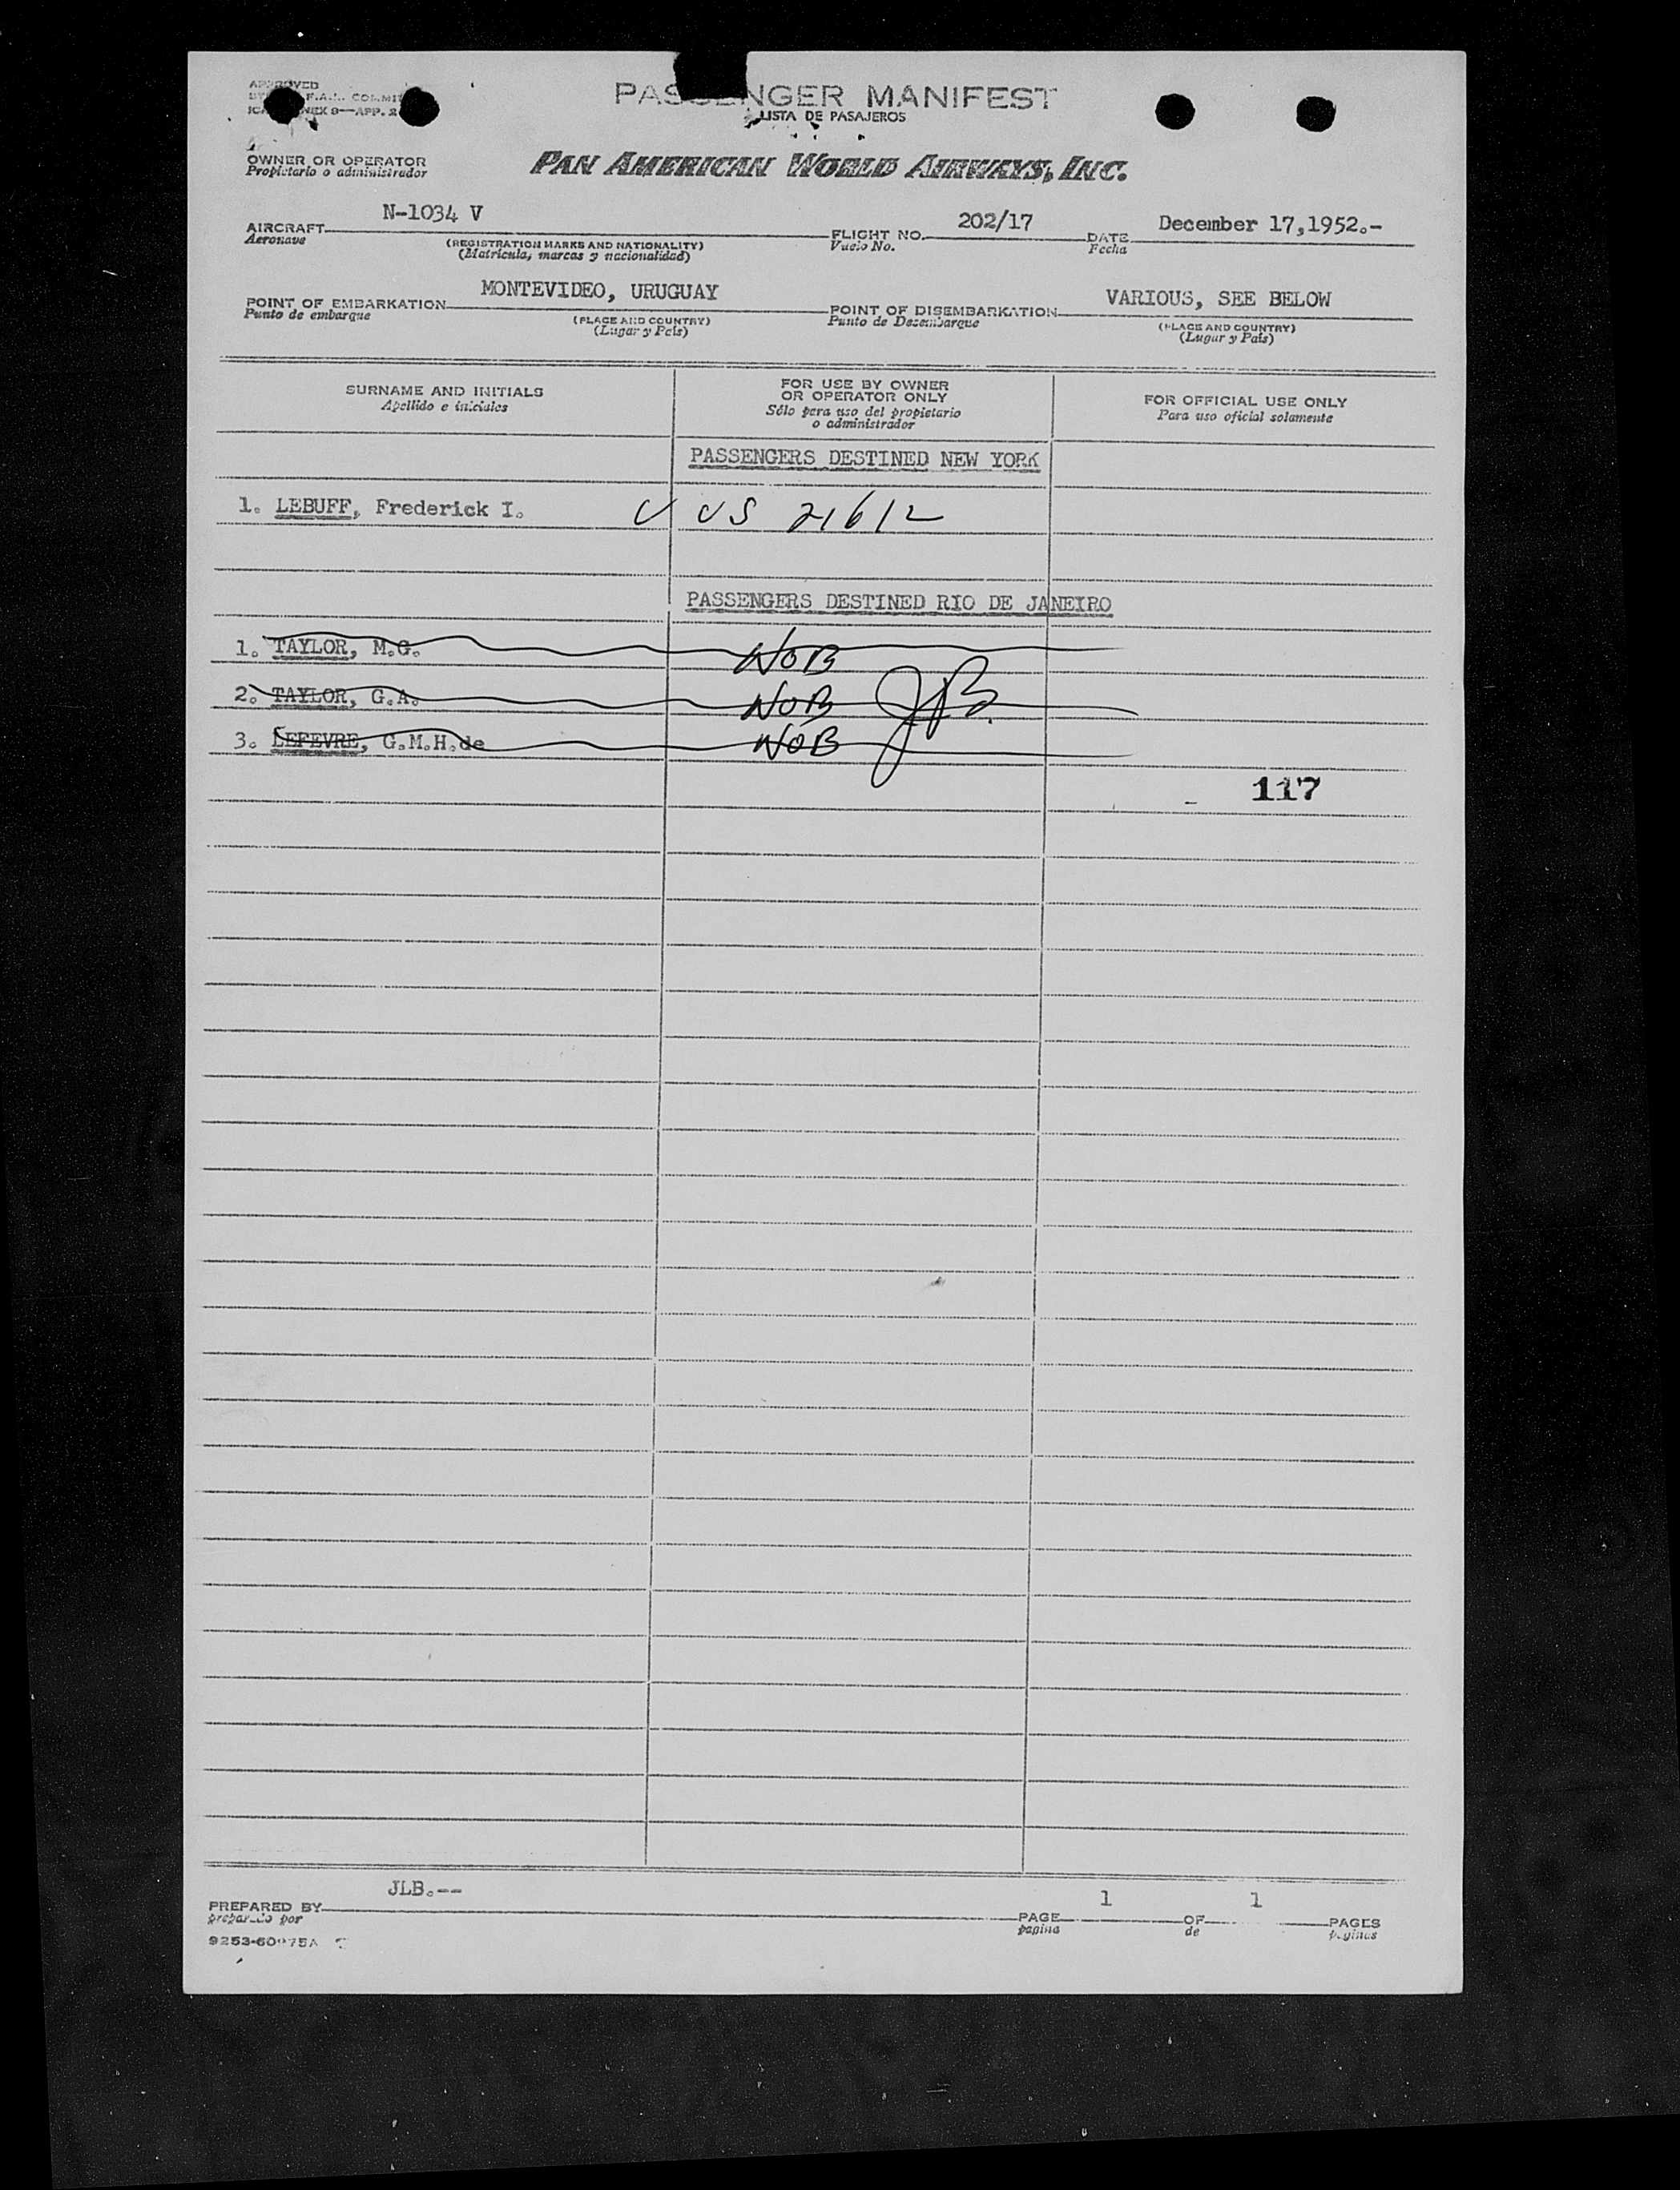 APPROVED
F.A.L. COMMIT
APP. 2
PASSENGER MANIFEST
LISTA DE PASAJEROS
OWNER OR OPERATOR
Propietario o administrador
PAN AMERICAN WORLD AIRWAYS, INC.
AIRCRAFT N-1034 V FLIGHT NO. 202/17 DATE December 17,1952.-
Aeronave (REGISTRATION MARKS AND NATIONALITY) Vuelo No. Fecha
(Matricula, marcas y nacionalidad)
POINT OF EMBARKATION MONTEVIDEO, URUGUAY POINT OF DISEMBARKATION VARIOUS, SEE BELOW
Punto de embarque (PLACE AND COUNTRY) Punto de Desembarque (PLACE AND COUNTRY)
(Lugar y País) (Lugar y País)
SURNAME AND INITIALS FOR USE BY OWNER OR OPERATOR ONLY FOR OFFICIAL USE ONLY
Apellido e iniciales Sólo para uso del propietario o administrador Para uso oficial solamente
PASSENGERS DESTINED NEW YORK
1. LEBUFF, Frederick I. US 21612
PASSENGERS DESTINED RIO DE JANEIRO
1. TAYLOR, M.G. NOB
2. TAYLOR, G.A. NOB JB.
3. LEFEVRE, G.M.H.de NOB
117
PREPARED BY JLB.-- PAGE 1 OF 1 PAGES
preparado por pagina de paginas